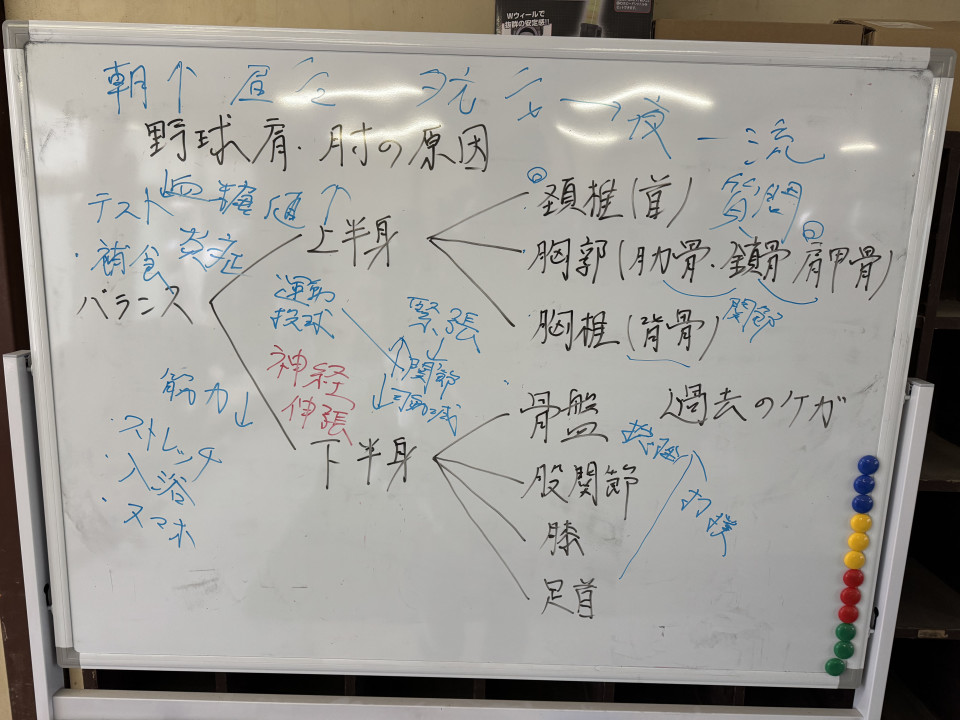 Wウィールで
抜群の安定感!!
朝↑ 昼 夕方 → 夜 一流
野球肩・肘の原因
テスト 血糖値↑
・補食 炎症
バランス
上半身
頚椎(首) 質問
胸郭(肋骨・鎖骨 肩甲骨)
関節
胸椎(背骨)
運動
投球
緊張
↑ ↓
関節
↓可動減
神経
伸張
筋力↓
・ストレッチ
・入浴
・スマホ
下半身
骨盤 過去のケガ
股関節
膝
足首
打撲